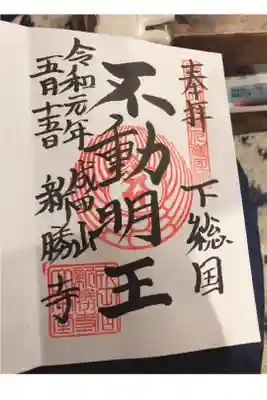 奉拝
下総国
不動明王
成田山
新勝寺
令和元年
五月十五日